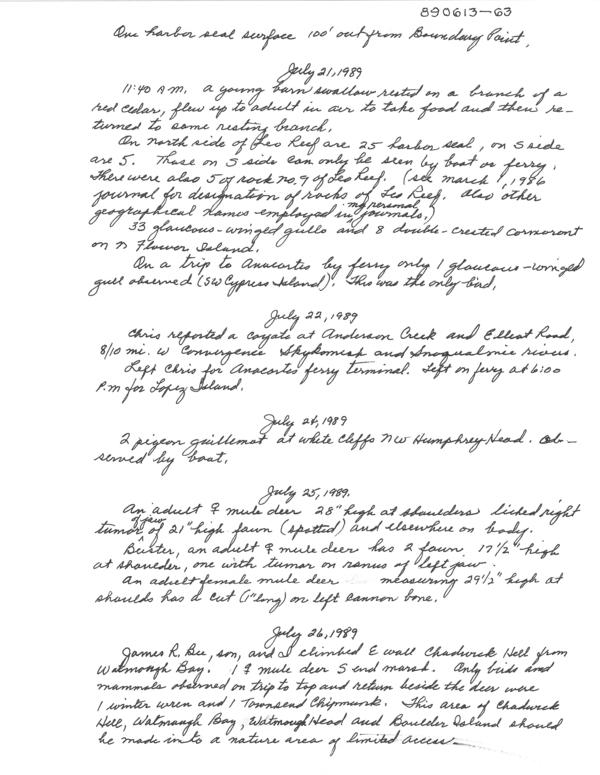 890613-63
One harbor seal surface 100' out from Boundary Point.
July 21, 1989
11:40 A.M. A young barn swallow rested on a branch of a
red cedar, flew up to adult in air to take food and then re-
turned to same resting branch.
On north side of Leo Reef are 25 harbor seal, on S side
are 5. Those on S side can only be seen by boat or ferry.
There were also 5 of rock no. 9 of Leo Reef. (see March 1, 1986
journal for designation of rocks of Leo Reef. Also other
geographical names employed in my personal journals.)
33 glaucous-winged gulls and 8 double-crested cormorant
on N Flower Island.
On a trip to Anacortes by ferry only 1 glaucous-winged
gull observed (SW Cypress Island). This was the only bird.
July 22, 1989
Chris reported a coyote at Anderson Creek and Elliot Road,
8/10 mi. W Convergence Skykomish and Snoqualmie rivers.
Left Chris for Anacortes ferry terminal. Left on ferry at 6:00
P.M for Lopez Island.
July 24, 1989
2 pigeon guillemot at white cliffs NW Humphrey Head. Ob-
served by boat.
July 25, 1989.
An adult ♀ mule deer 28" high at shoulders licked right
tumor of jaw of 21" high fawn (spotted) and elsewhere on body.
Buster, an adult ♀ mule deer has 2 fawn 17 1/2" high
at shoulder, one with tumor on ramus of left jaw.
An adult female mule deer measuring 29 1/2" high at
shoulds has a cut (1" long) on left cannon bone.
July 26, 1989
James R. Bee, son, and I climbed E wall Chadwick Hill from
Watmough Bay. 1 ♀ mule deer S end marsh. Only birds and
mammals observed on trip to top and return beside the deer were
1 winter wren and 1 Townsend Chipmunk. This area of Chadwick
Hill, Watmough Bay, Watmough Head and Boulder Island should
be made into a nature area of limited access.